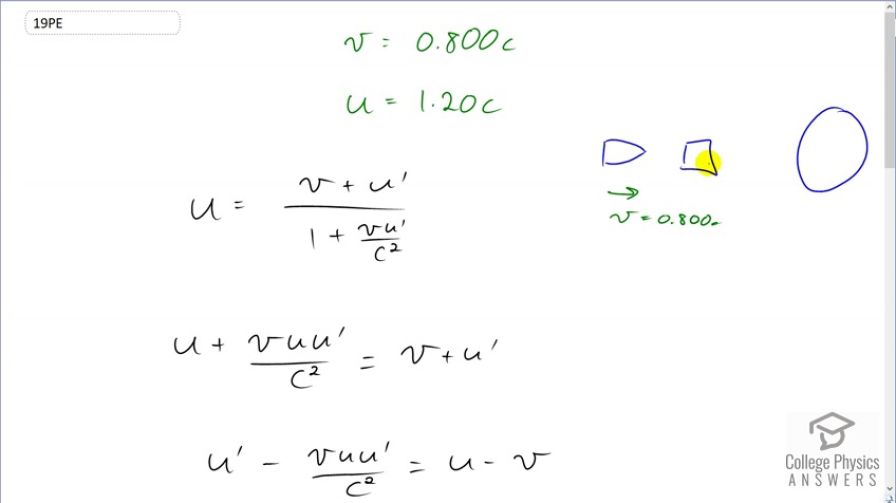 19PE
v = 0.800c
u = 1.20c
v = 0.800c
u = (v + u') / (1 + vu'/c²)
u + vuu'/c² = v + u'
u' - vuu'/c² = u - v
College Physics
ANSWERS